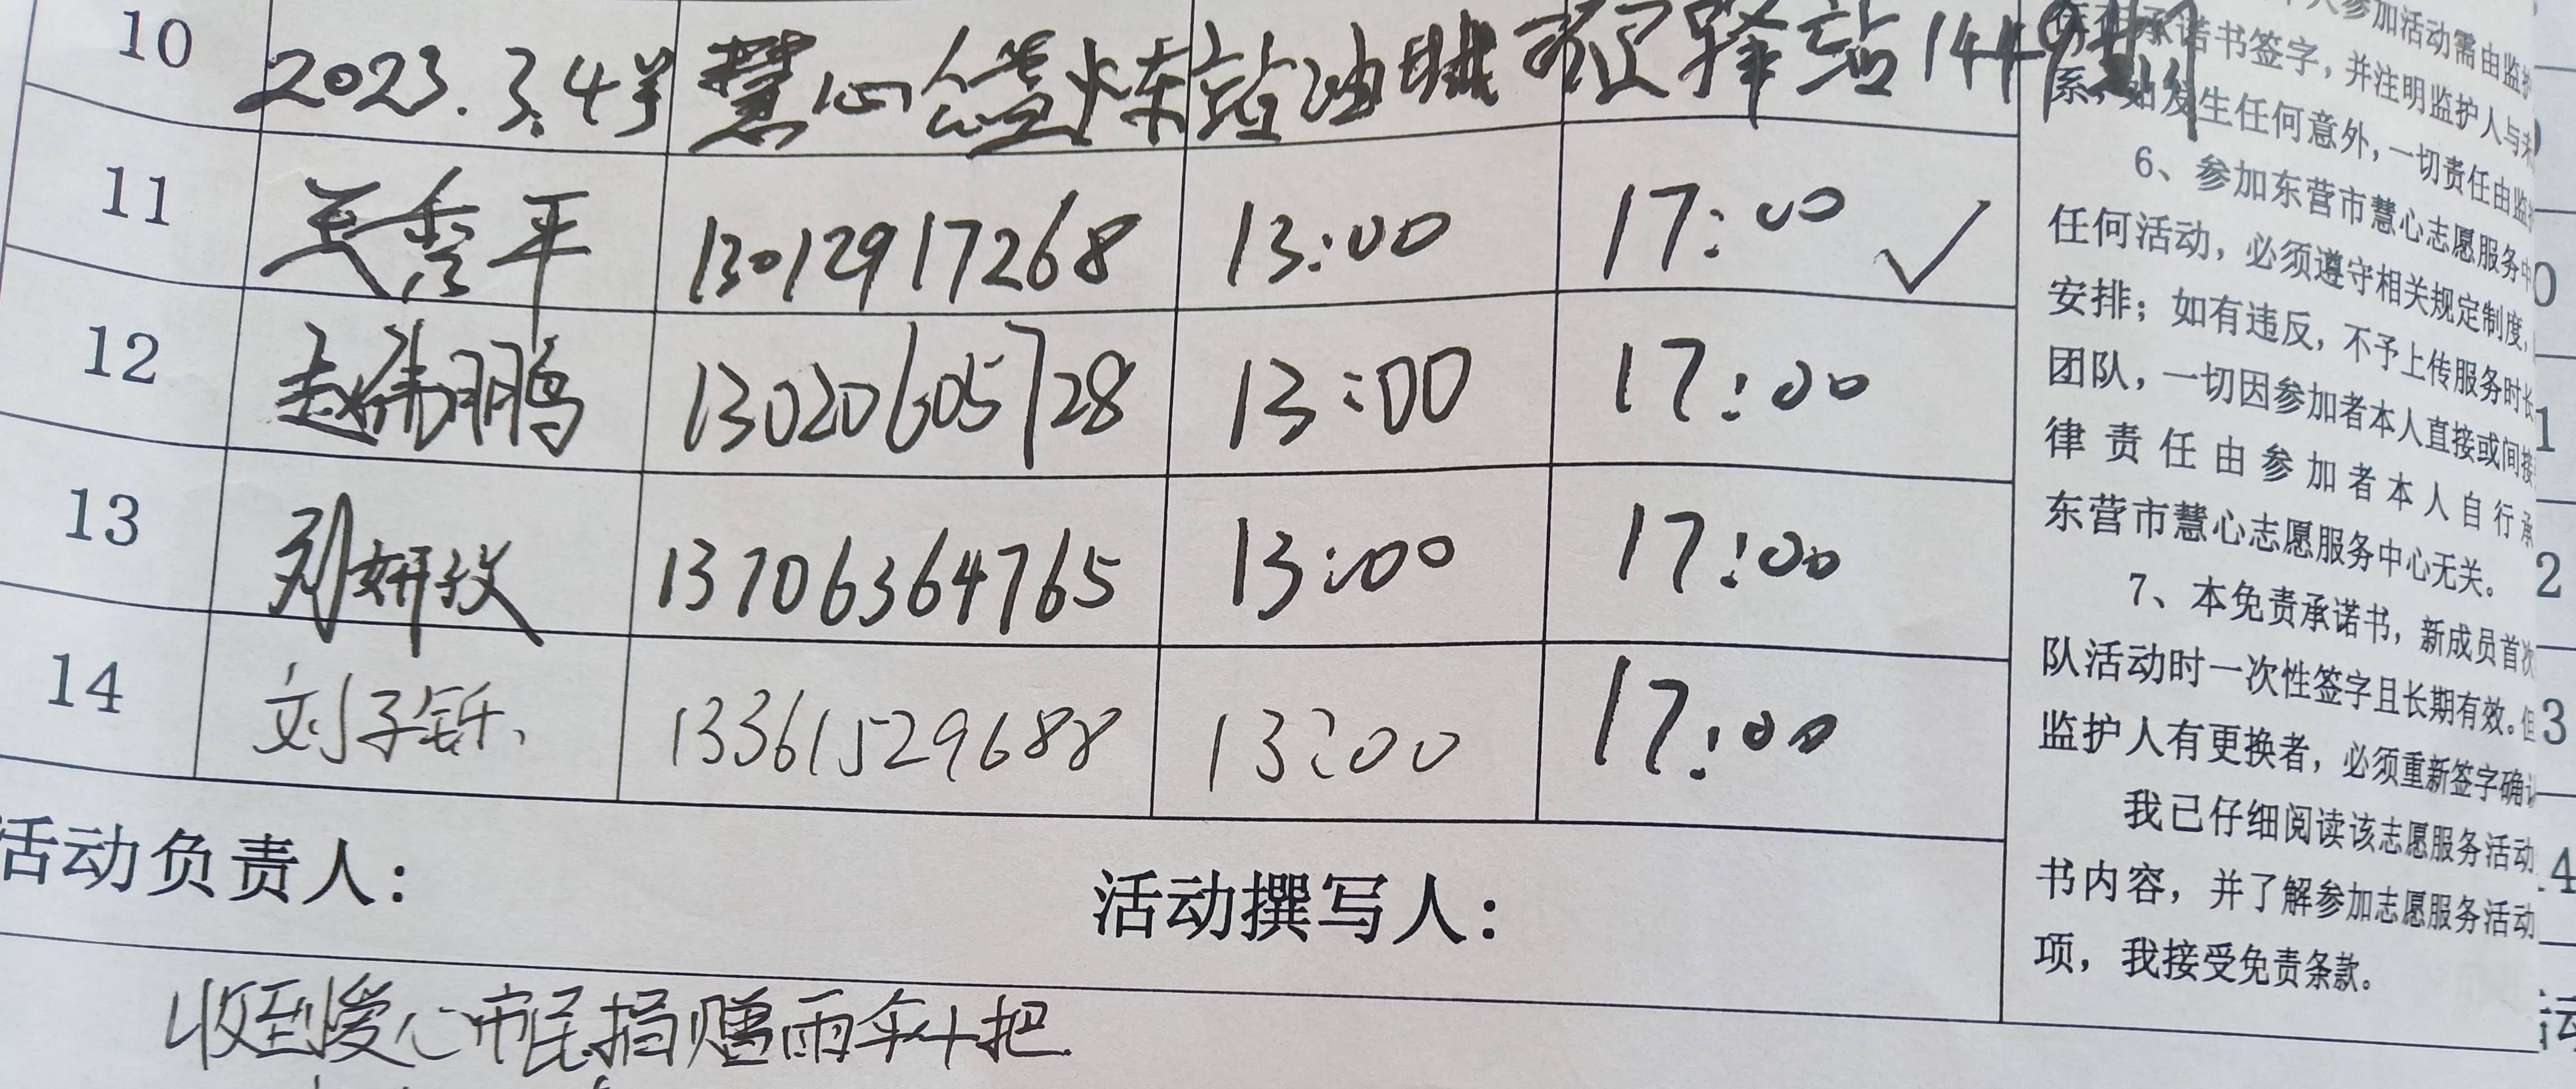 10 2023.3.4 慧心 站油城 驿站144期
11 王秀平 13012917268 13:00 17:00 ✓
12 赵伟鹏 13020605728 13:00 17:00
13 刘妍孜 13706364765 13:00 17:00
14 刘子铄 13361529688 13:00 17:00
活动负责人: 活动撰写人:
收到爱心市民捐赠雨伞十把
人参加活动需由监护
承诺书签字,并注明监护人与未
系,如发生任何意外,一切责任由监
6、参加东营市慧心志愿服务中
任何活动,必须遵守相关规定制度,
安排;如有违反,不予上传服务时长
团队,一切因参加者本人直接或间接
律责任由参加者本人自行承
东营市慧心志愿服务中心无关。
7、本免责承诺书,新成员首次
队活动时一次性签字且长期有效。但
监护人有更换者,必须重新签字确认
我已仔细阅读该志愿服务活动
书内容,并了解参加志愿服务活动
项,我接受免责条款。